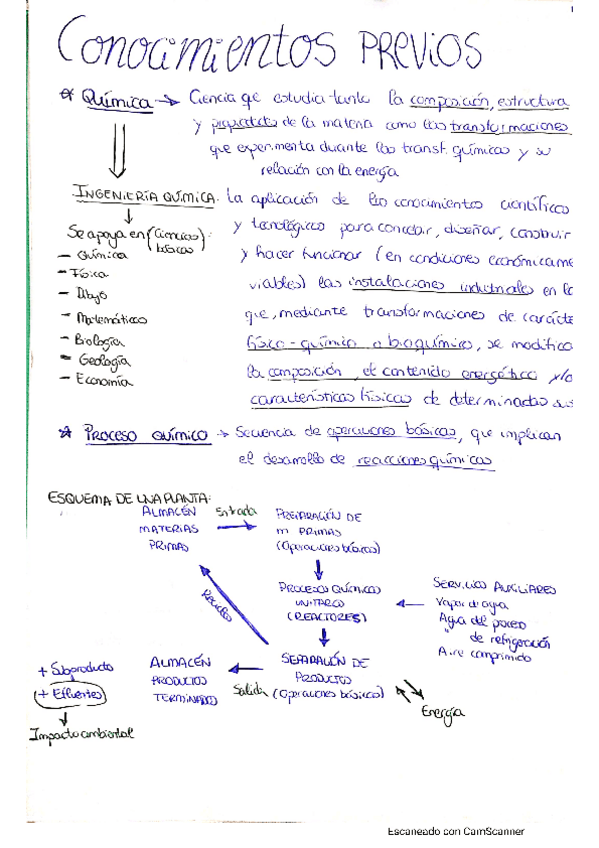 1
Conocimientos PREVIOS
* Química → Ciencia que estudia tanto la composición, estructura
y propiedades de la materia como las transformaciones
que experimenta durante las transf. químicas y su
relación con la energía
INGENIERÍA QUÍMICA. La aplicación de los conocimientos científicos
y tecnológicos para concebir, diseñar, construir
y hacer funcionar (en condiciones económicame
viables) las instalaciones industriales en la
que, mediante transformaciones de carácte
físico-químico o bioquímico, se modifica
la composición, el contenido energético y/o
características físicas de determinadas sus
Se apoya en (Ciencias básicas):
- Química
- Física
- Dibujo
- Matemáticas
- Biología
- Geología
- Economía
* PROCESO QUÍMICO → Secuencia de operaciones básicas, que implican
el desarrollo de reacciones químicas
ESQUEMA DE UNA PLANTA:
ALMACÉN
MATERIAS
PRIMAS
Entrada
PREPARACIÓN DE
M PRIMAS
(Operaciones básicas)
PROCESOS QUÍMICOS
UNITARIOS
(REACTORES)
SERVICIOS AUXILIARES
Vapor de agua
Agua del proceso
" de refrigeración
Aire comprimido
Reciclo
SEPARACIÓN DE
PRODUCTOS
(Operaciones básicas)
Salida
ALMACÉN
PRODUCTOS
TERMINADOS
+ Subproducto
+ Efluentes
Impacto ambiental
Energía
Escaneado con CamScanner